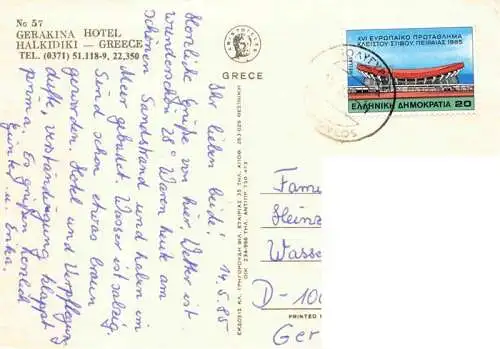 No 57
GERAKINA HOTEL
HALKIDIKI — GREECE
TEL. (0371) 51.118-9, 22,350
GREECE
XVI ΕΥΡΩΠΑΪΚΟ ΠΡΩΤΑΘΛΗΜΑ
ΚΛΕΙΣΤΟΥ ΣΤΙΒΟΥ ΠΕΙΡΑΙΑΣ 1985
ΕΛΛΗΝΙΚΗ ΔΗΜΟΚΡΑΤΙΑ 20
14.5.85
Ihr lieben beide!
Herzliche Grüße von hier. Wetter ist
wunderschön 28° Waren heute am
schönen Sandstrand und haben im
Meer gebadet. Wasser ist salzig.
Sind schon etwas braun
geworden. Hotel und Verpflegung
dufte, Verständigung klappt
prima. Es grüßen herzlich
Günter u. Erika.
Fam
Heinz
Wasse
D-10
PRINTED
Ger